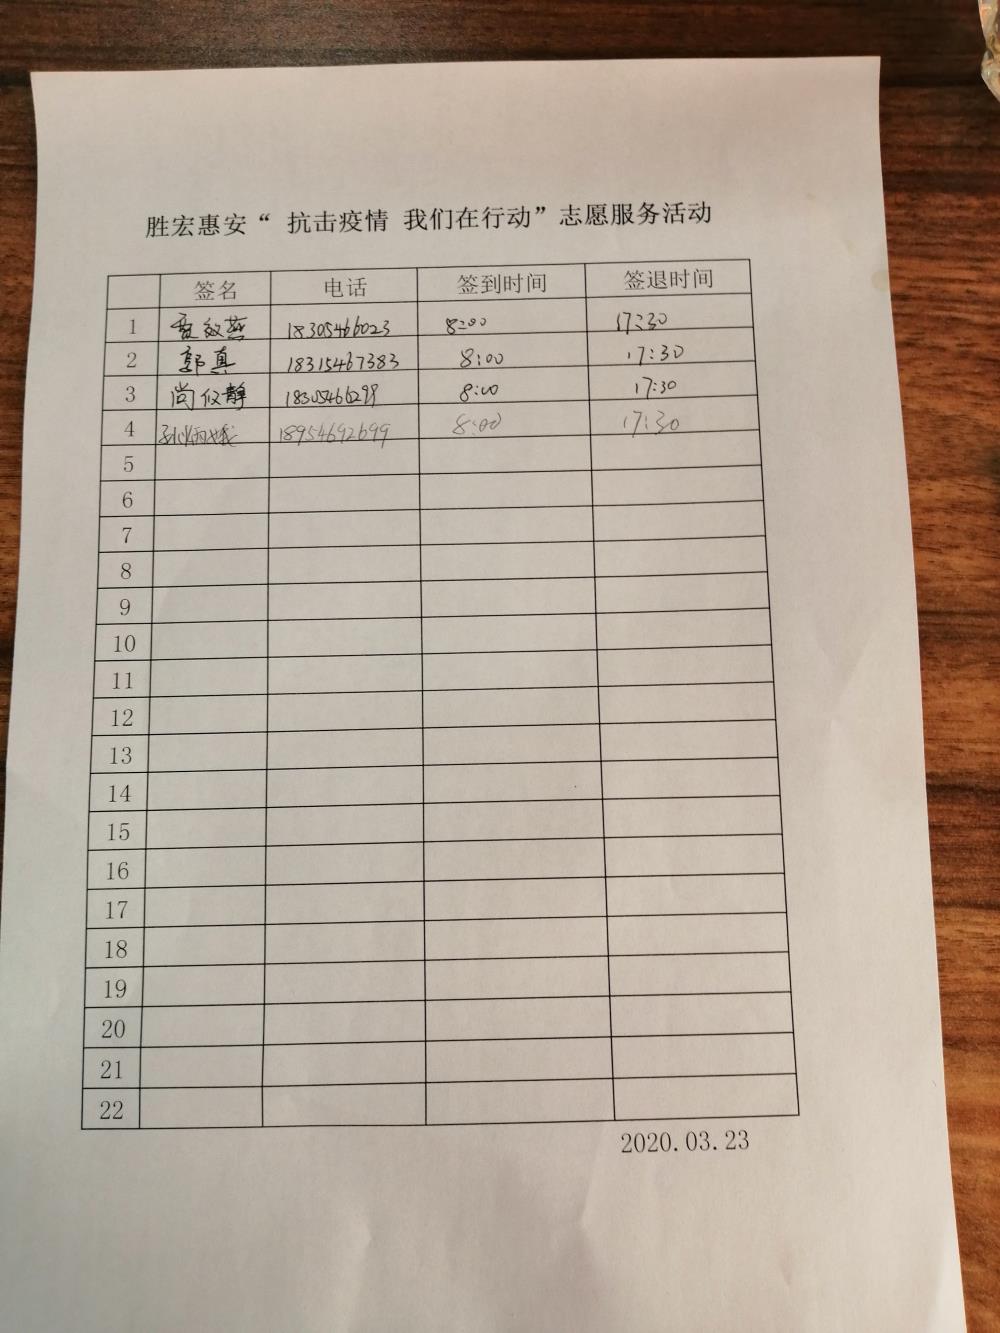 胜宏惠安“ 抗击疫情 我们在行动”志愿服务活动
签名 电话 签到时间 签退时间
1 18305466023 8:00 17:30
2 郭真 18315467383 8:00 17:30
3 尚仪静 18305466299 8:00 17:30
4 18954692699 8:00 17:30
5
6
7
8
9
10
11
12
13
14
15
16
17
18
19
20
21
22
2020.03.23